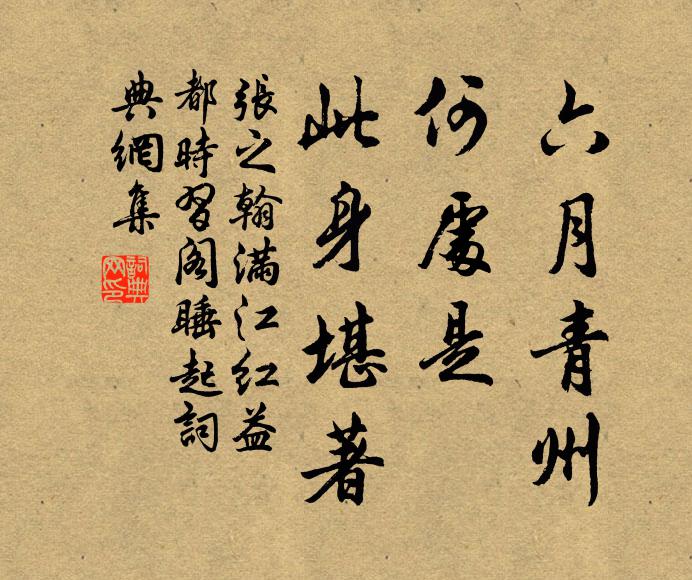 六月青州
何處是
此身堪著
張之翰滿江紅益
都時習閣睡起詞
典網集
詞典網印